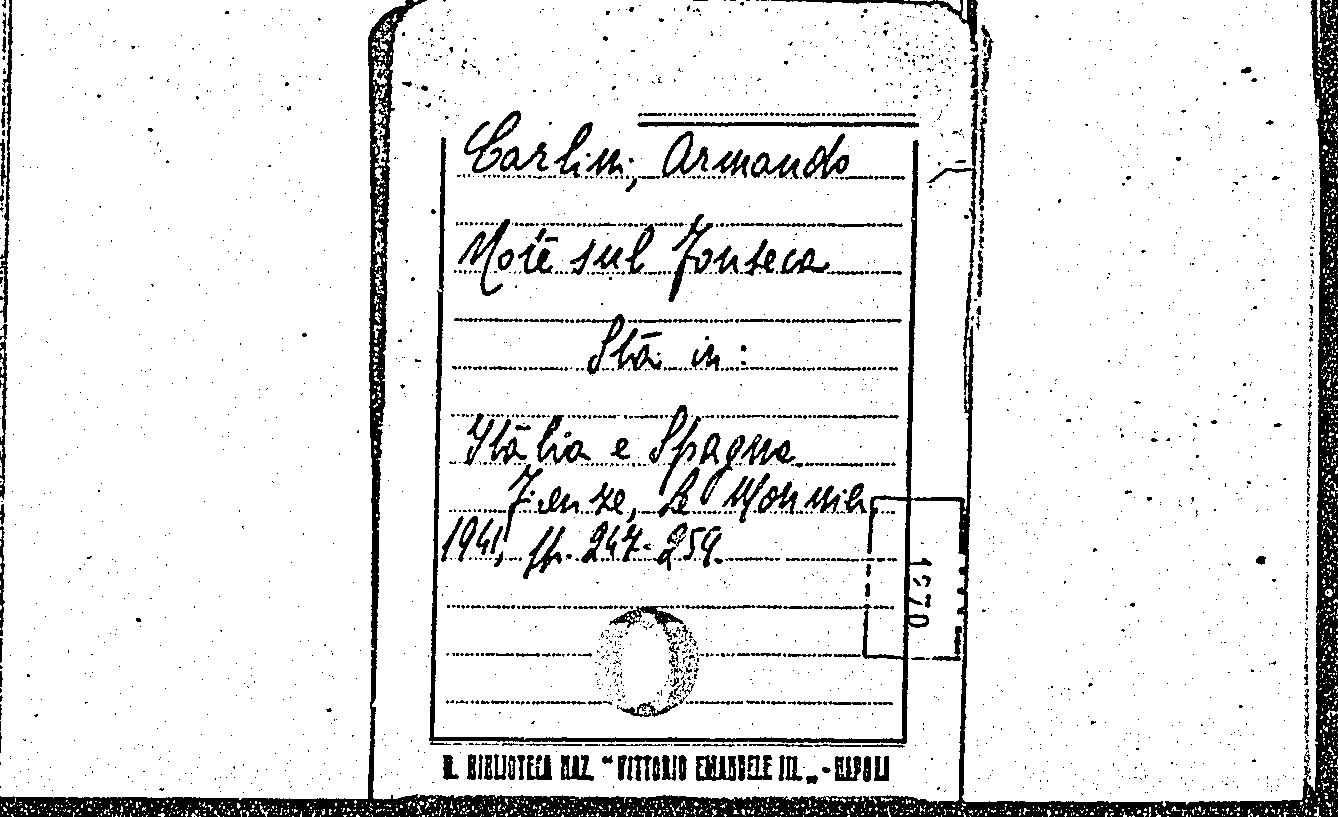 Carlini, Armando
Note sul Fonseca
Sta in:
Italia e Spagna
Firenze, Le Monnier,
1941, pp. 247-259.
1970
R. BIBLIOTECA NAZ. "VITTORIO EMANUELE III." - NAPOLI